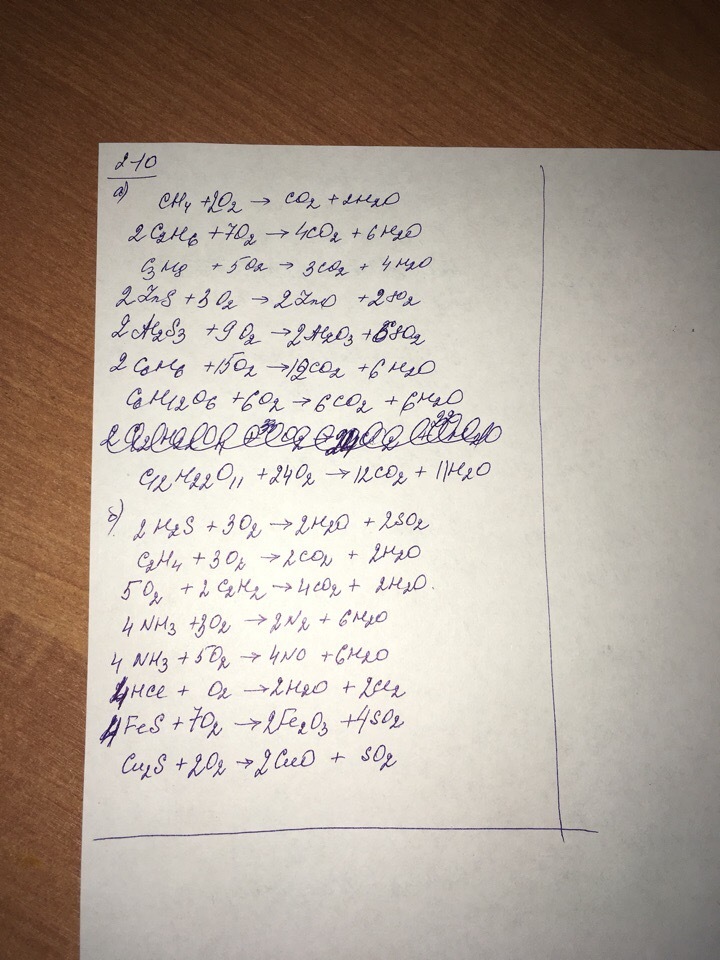 2-10
а)
CH₄ + 2O₂ → CO₂ + 2H₂O
2C₂H₆ + 7O₂ → 4CO₂ + 6H₂O
C₃H₈ + 5O₂ → 3CO₂ + 4H₂O
2ZnS + 3O₂ → 2ZnO + 2SO₂
2Al₂S₃ + 9O₂ → 2Al₂O₃ + 6SO₂
2C₆H₆ + 15O₂ → 12CO₂ + 6H₂O
C₆H₁₂O₆ + 6O₂ → 6CO₂ + 6H₂O
C₁₂H₂₂O₁₁ + 24O₂ → 12CO₂ + 11H₂O
б)
2H₂S + 3O₂ → 2H₂O + 2SO₂
C₂H₄ + 3O₂ → 2CO₂ + 2H₂O
5O₂ + 2C₂H₂ → 4CO₂ + 2H₂O.
4NH₃ + 3O₂ → 2N₂ + 6H₂O
4NH₃ + 5O₂ → 4NO + 6H₂O
4HCl + O₂ → 2H₂O + 2Cl₂
4FeS + 7O₂ → 2Fe₂O₃ + 4SO₂
Cu₂S + 2O₂ → 2CuO + SO₂